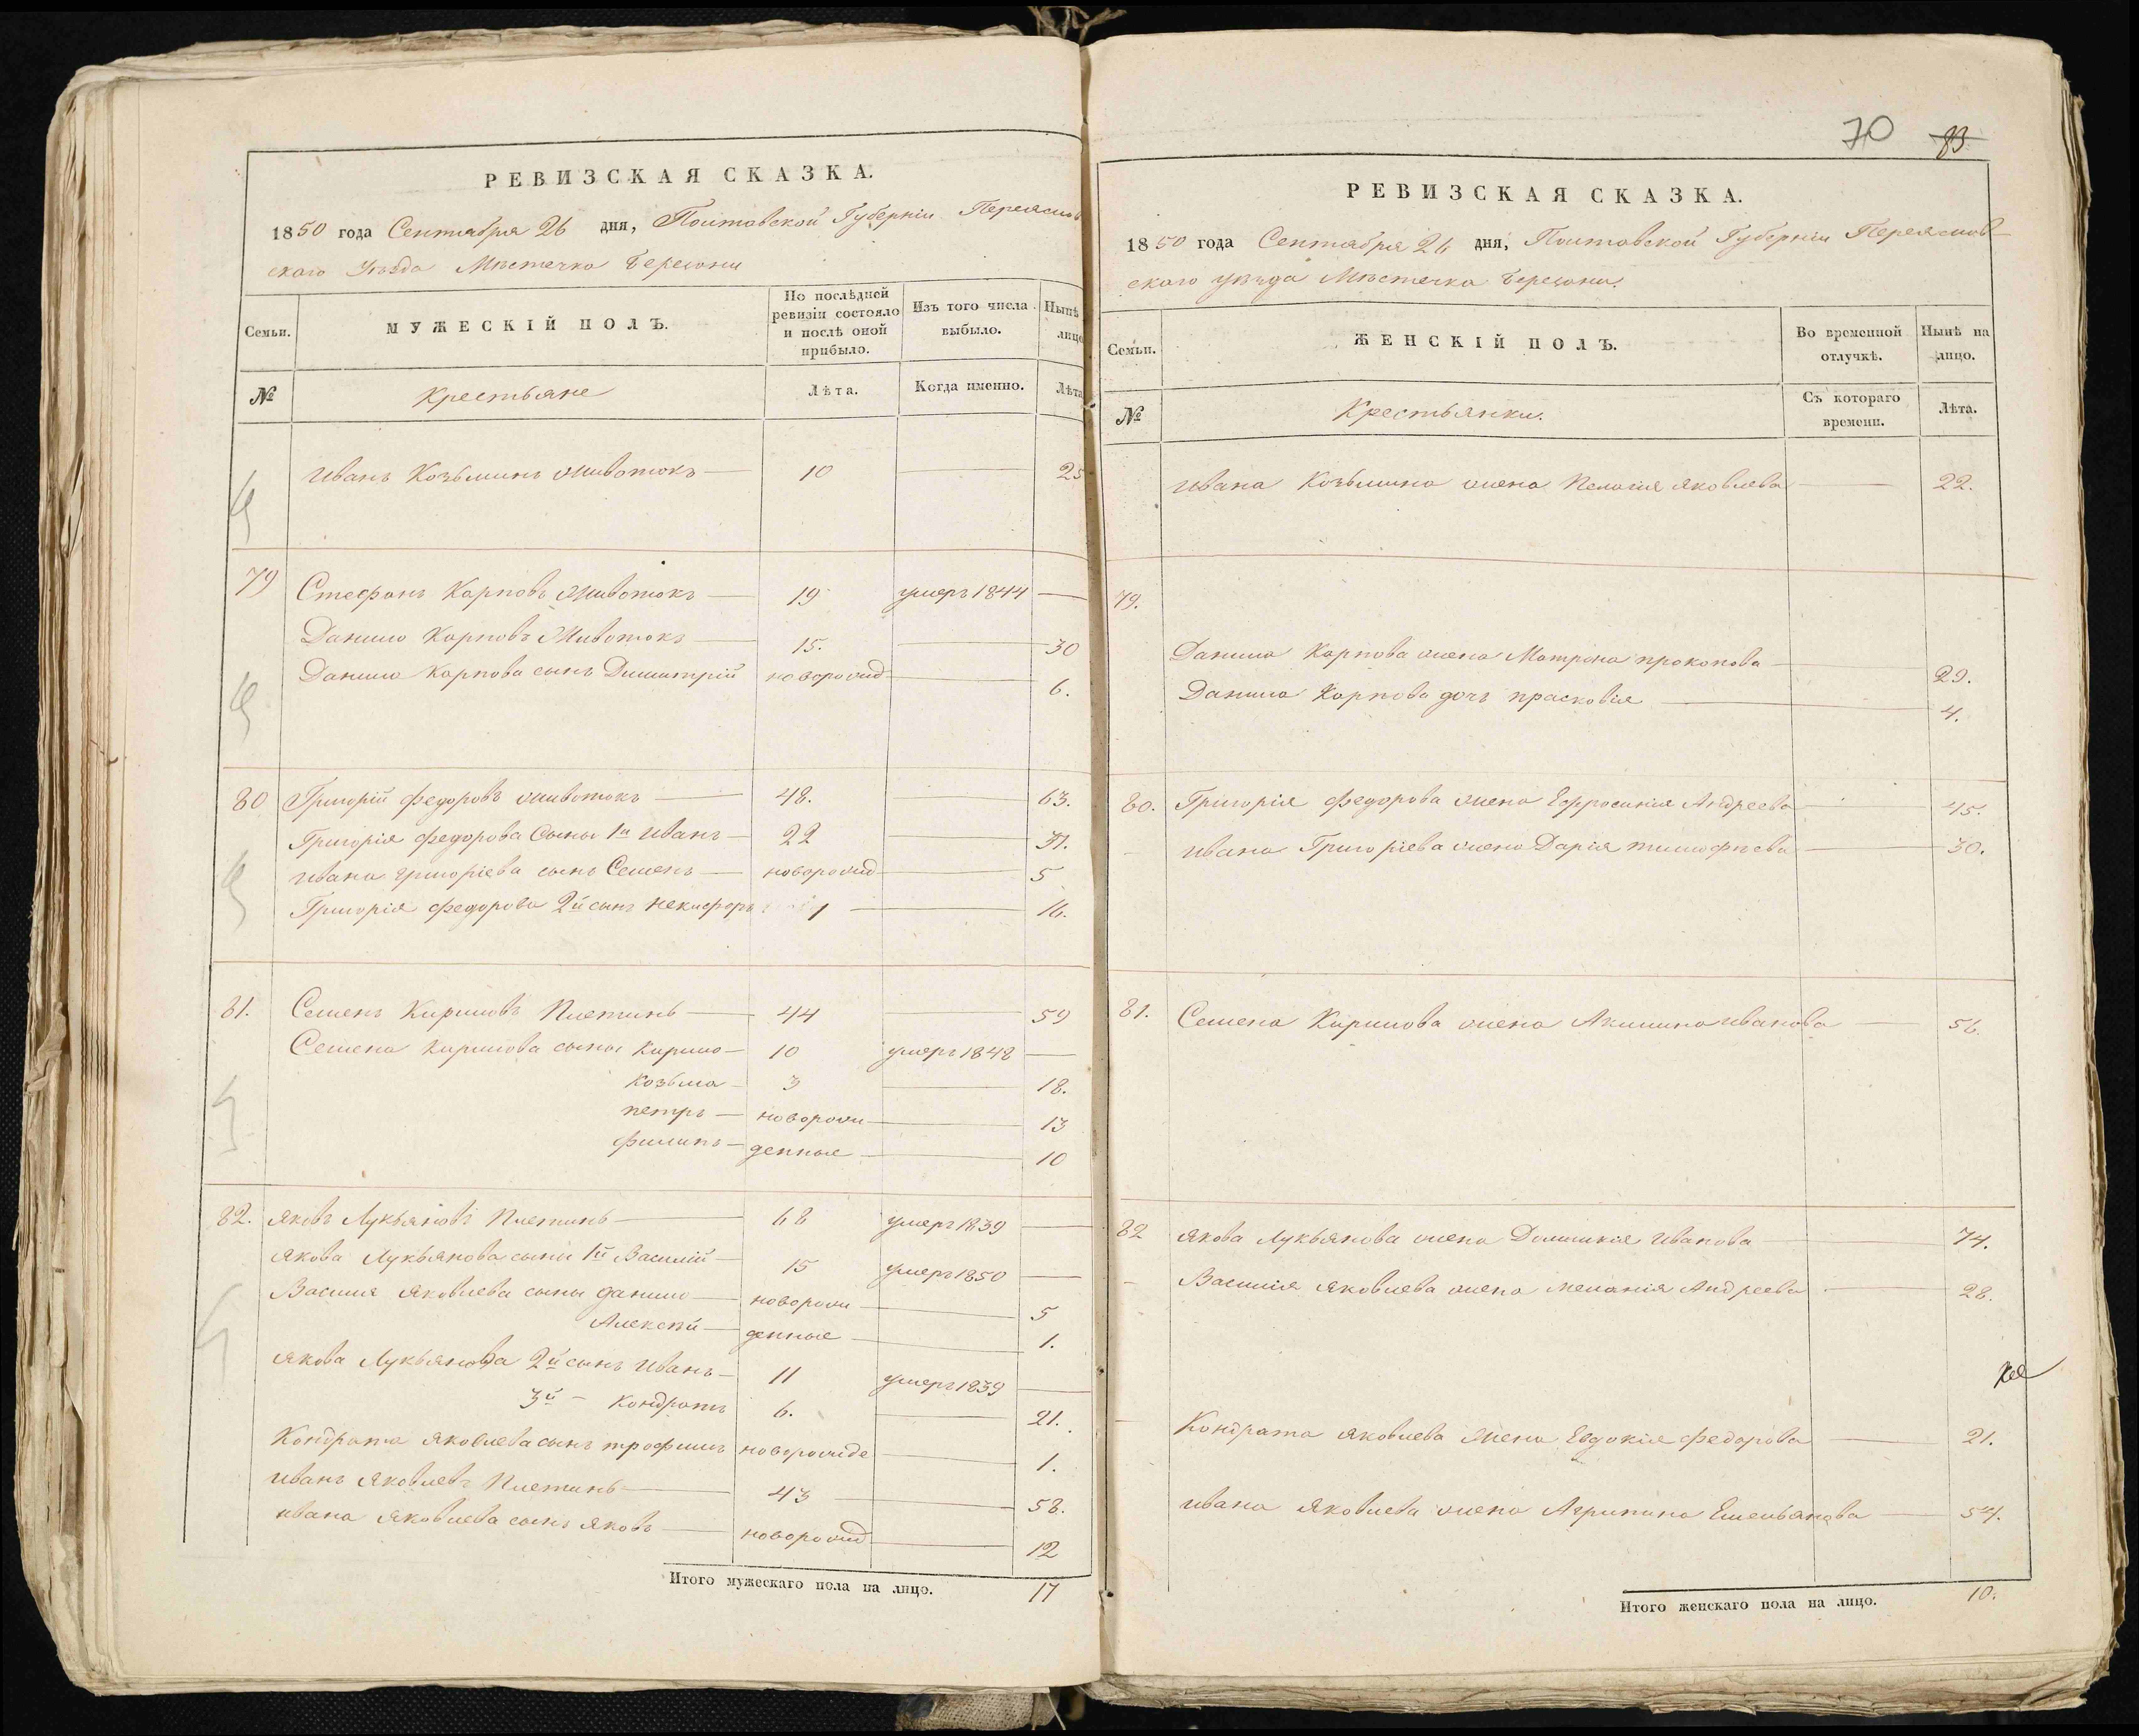 РЕВИЗСКАЯ СКАЗКА.
1850 года Сентября 26 дня, Полтавской Губерніи Переяслов
скаго Уѣзда Мѣстечка Березани
Семьи.
МУЖЕСКІЙ ПОЛЪ.
По послѣдней ревизіи состояло и послѣ оной прибыло.
Изъ того числа выбыло.
Нынѣ лицо
№
Крестьяне
Лѣта.
Когда именно.
Лѣта
Иванъ Козьминъ Животокъ — 10 — 25
79 Стефанъ Карповъ Животокъ — 19 умеръ 1844 —
Данило Карповъ Животокъ — 15. — 30
Данила Карпова сынъ Димитрій новорожд — 6.
80 Григорій Федоровъ Животокъ — 48. — 63.
Григорія Федорова Сыны 1й Иванъ — 22 — 37.
Ивана Григоріева сынъ Семенъ — новорожд — 5
Григорія Федорова 2й сынъ Никифоръ 1 — 16.
81. Семенъ Кириловъ Плетинь — 44 — 59
Семена Кирилова сыны Кирило — 10 умеръ 1848 —
Козьма — 3 — 18.
петръ — новорож — 13
филипъ — денные — 10
82. Яковъ Лукьяновъ Плетинь — 68 умеръ 1839 —
Якова Лукьянова сыны 1й Василій — 15 умеръ 1850 —
Василія Яковлева сыны Данило — новорож — 5
Алексѣй — денные — 1.
Якова Лукьянова 2й сынъ Иванъ — 11 умеръ 1839 —
3й — Кондратъ 6. — 21.
Кондрата Яковлева сынъ трофимъ новорожде — 1.
Иванъ Яковлевъ Плетинь — 43 — 58.
Ивана Яковлева сынъ Яковъ — новорожд — 12
Итого мужескаго пола на лицо. 17
70 83
РЕВИЗСКАЯ СКАЗКА.
1850 года Сентября 26 дня, Полтавской Губерніи Переяслов-
скаго уѣзда Мѣстечка Березани.
Семьи.
ЖЕНСКІЙ ПОЛЪ.
Во временной отлучкѣ.
Нынѣ на лицо.
№
Крестьянки.
Съ котораго времени.
Лѣта.
Ивана Козьмина жена Пелагія Яковлева — 22.
79.
Данила Карпова жена Матрона прокопова — 29.
Данила Карпова дочь прасковія — 4.
80. Григорія Федорова жена Ефросинія Андреева — 45.
Ивана Григоріева жена Дарія тимофѣева — 30.
81. Семена Кирилова жена Акилина Иванова — 56.
82 Якова Лукьянова жена Домникія Иванова — 74.
Василія Яковлева жена Меланія Андреева — 28.
Кондрата Яковлева жена Евдокія Федорова — 21.
Ивана Яковлева жена Агрипина Емельянова — 54.
Итого женскаго пола на лицо. 10.